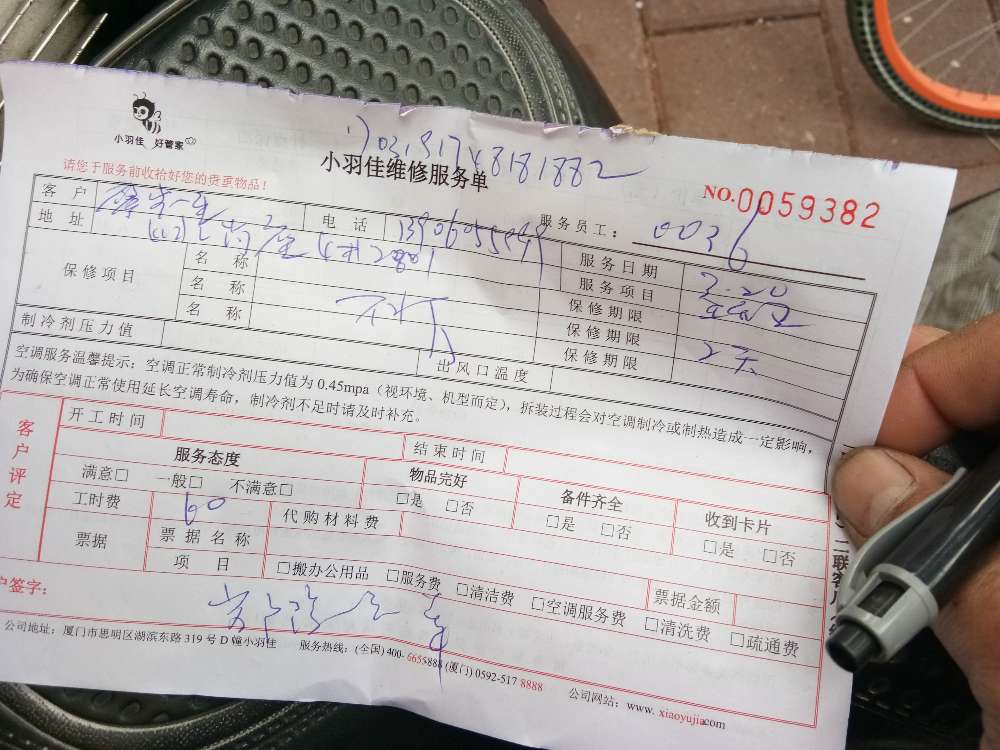 小羽佳 好管家
小羽佳维修服务单
NO.0059382
请您于服务前收拾好您的贵重物品！
服务员工： 0036
客户 电话
地址
服务日期 3.20
保修项目 名称 服务项目
名称 保修期限
名称 保修期限
保修期限 2天
制冷剂压力值 出风口温度
空调服务温馨提示：空调正常制冷剂压力值为 0.45mpa（视环境、机型而定），拆装过程会对空调制冷或制热造成一定影响，
为确保空调正常使用延长空调寿命，制冷剂不足时请及时补充。
客户评定
开工时间 结束时间
服务态度 物品完好 备件齐全 收到卡片
满意□ 一般□ 不满意□ □是 □否 □是 □否 □是 □否
工时费 60 代购材料费
票据 票据名称
项目 □搬办公用品 □服务费 □清洁费 □空调服务费 □清洗费 □疏通费
票据金额
户签字：
公司地址：厦门市思明区湖滨东路 319 号 D 幢小羽佳 服务热线：(全国) 400-6655888 (厦门) 0592-517 8888 公司网站：www.xiaoyujia.com